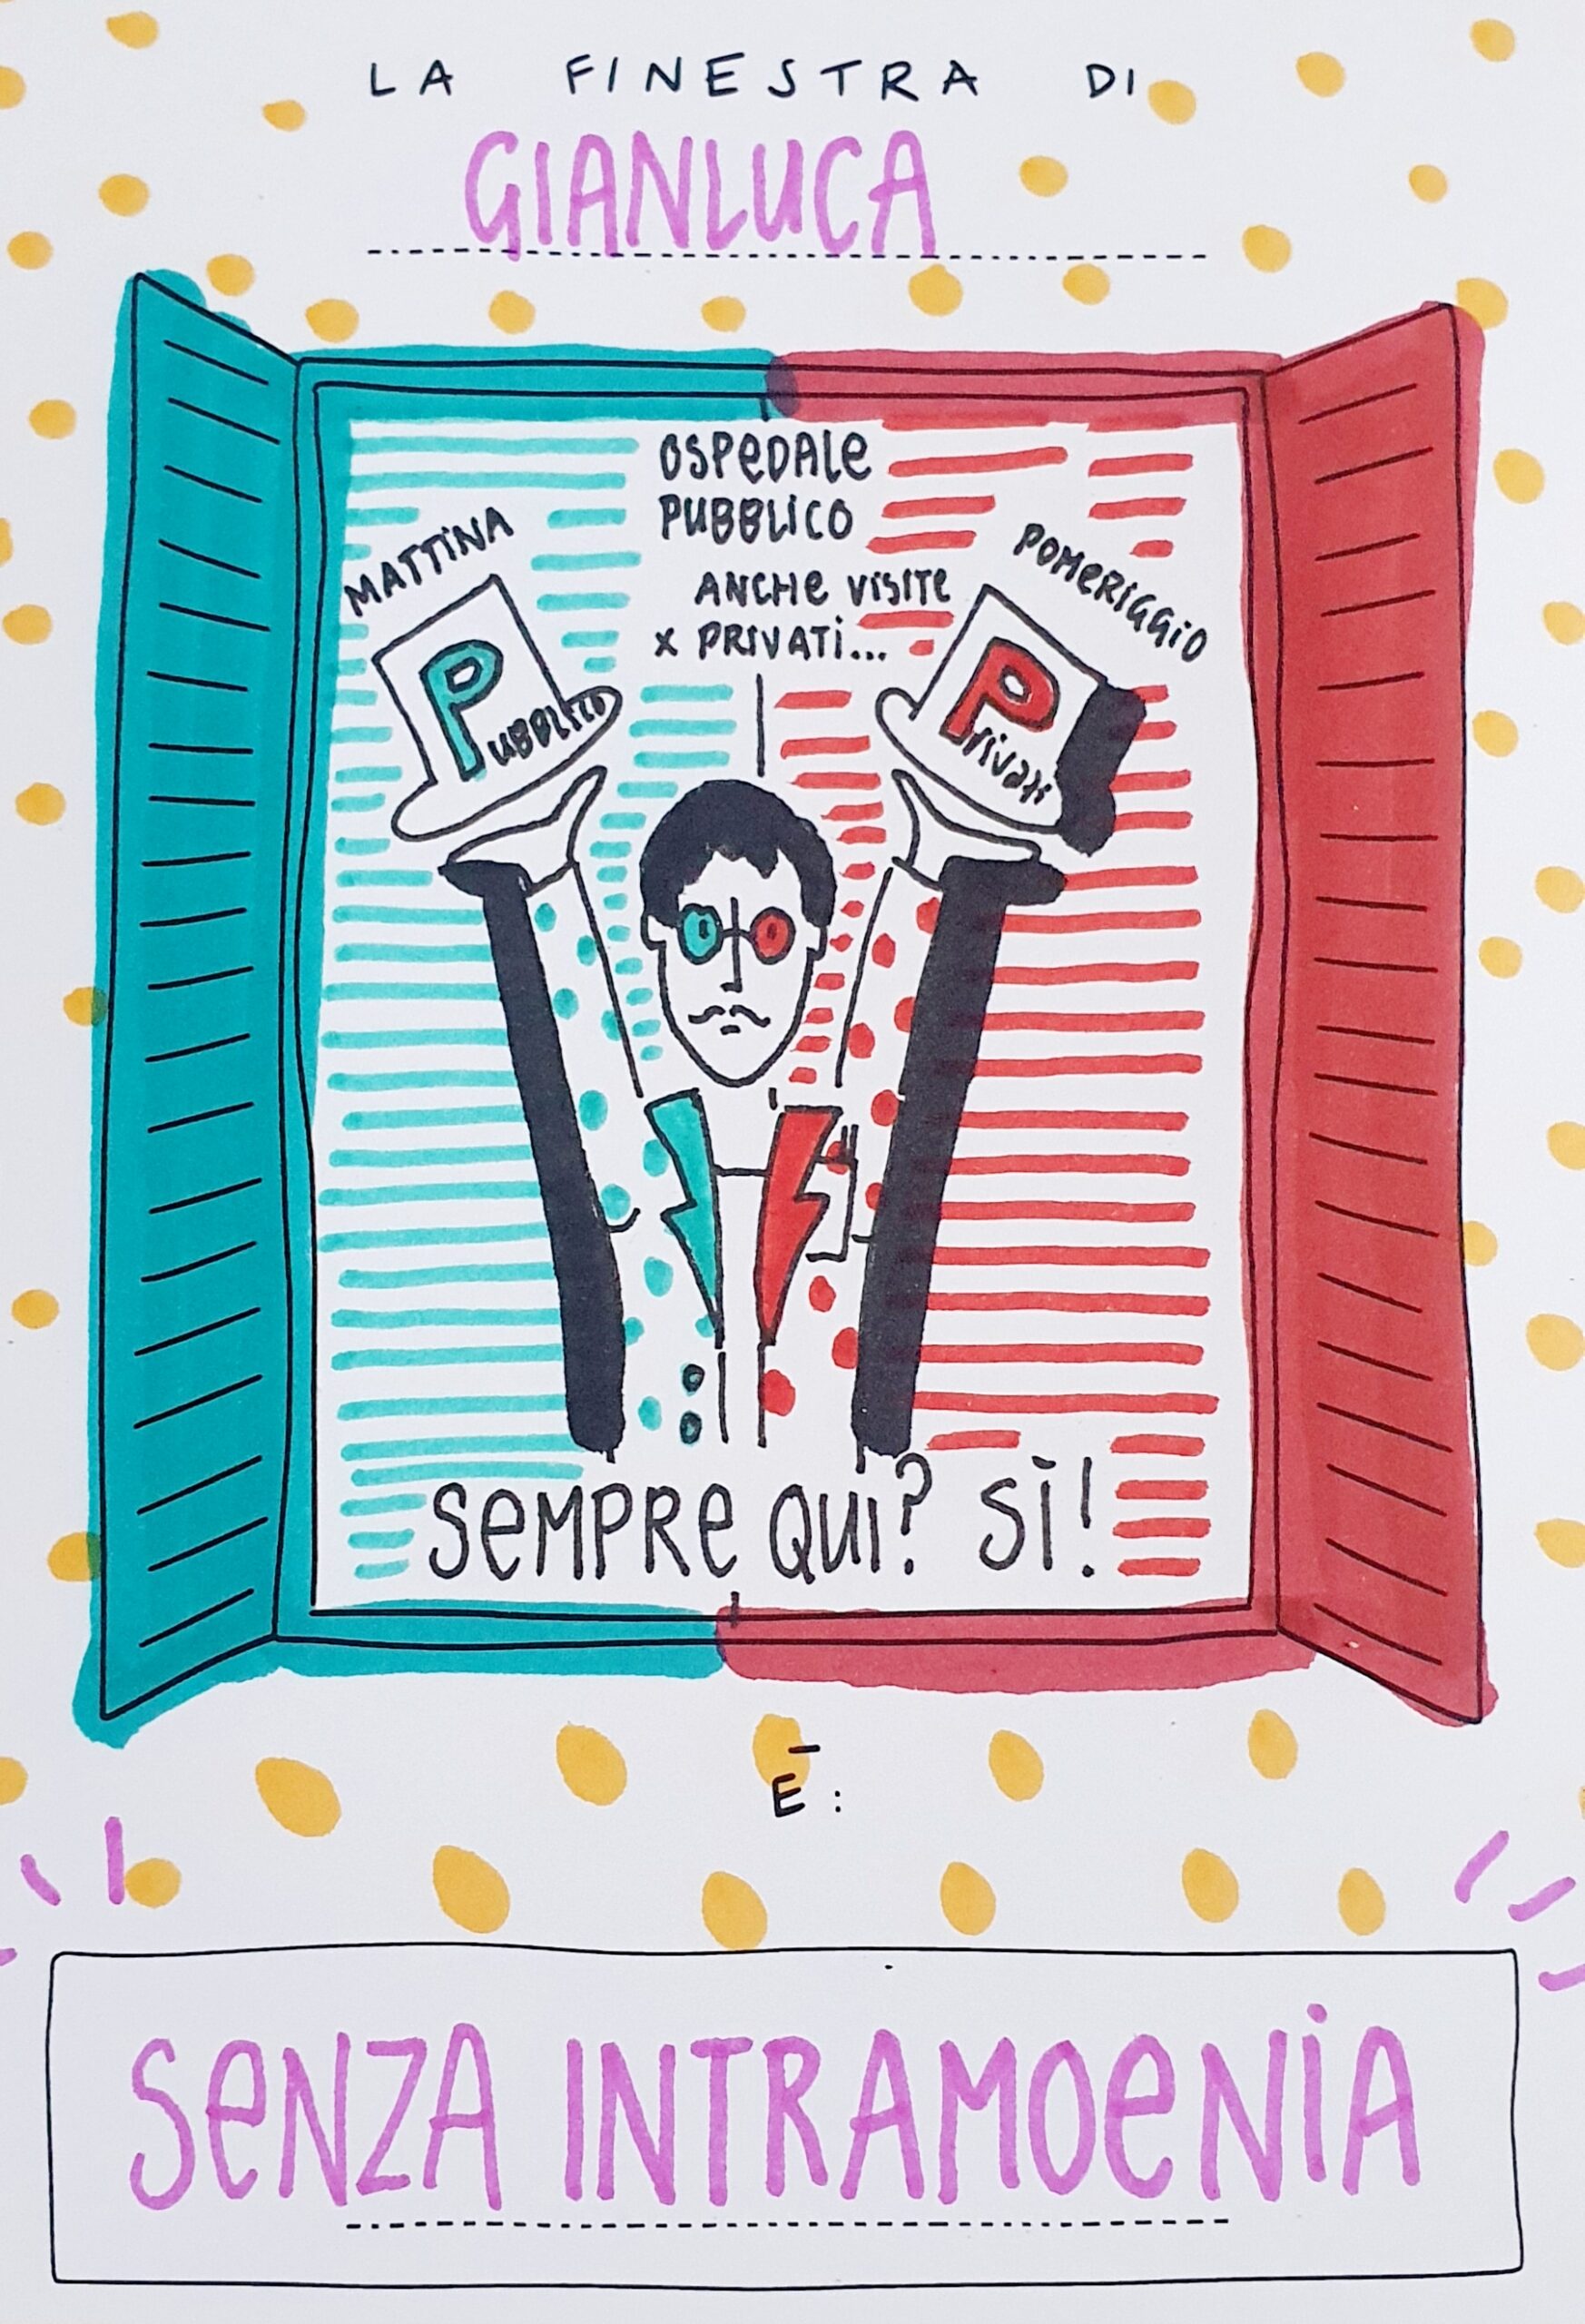 LA FINESTRA DI
GIANLUCA
OSPEDALE
PUBBLICO
ANCHE VISITE
x PRIVATI...
MATTINA
POMERIGGIO
PUBBLICO
Privati
SEMPRE QUI? SI!
Ē:
SENZA INTRAMOENIA